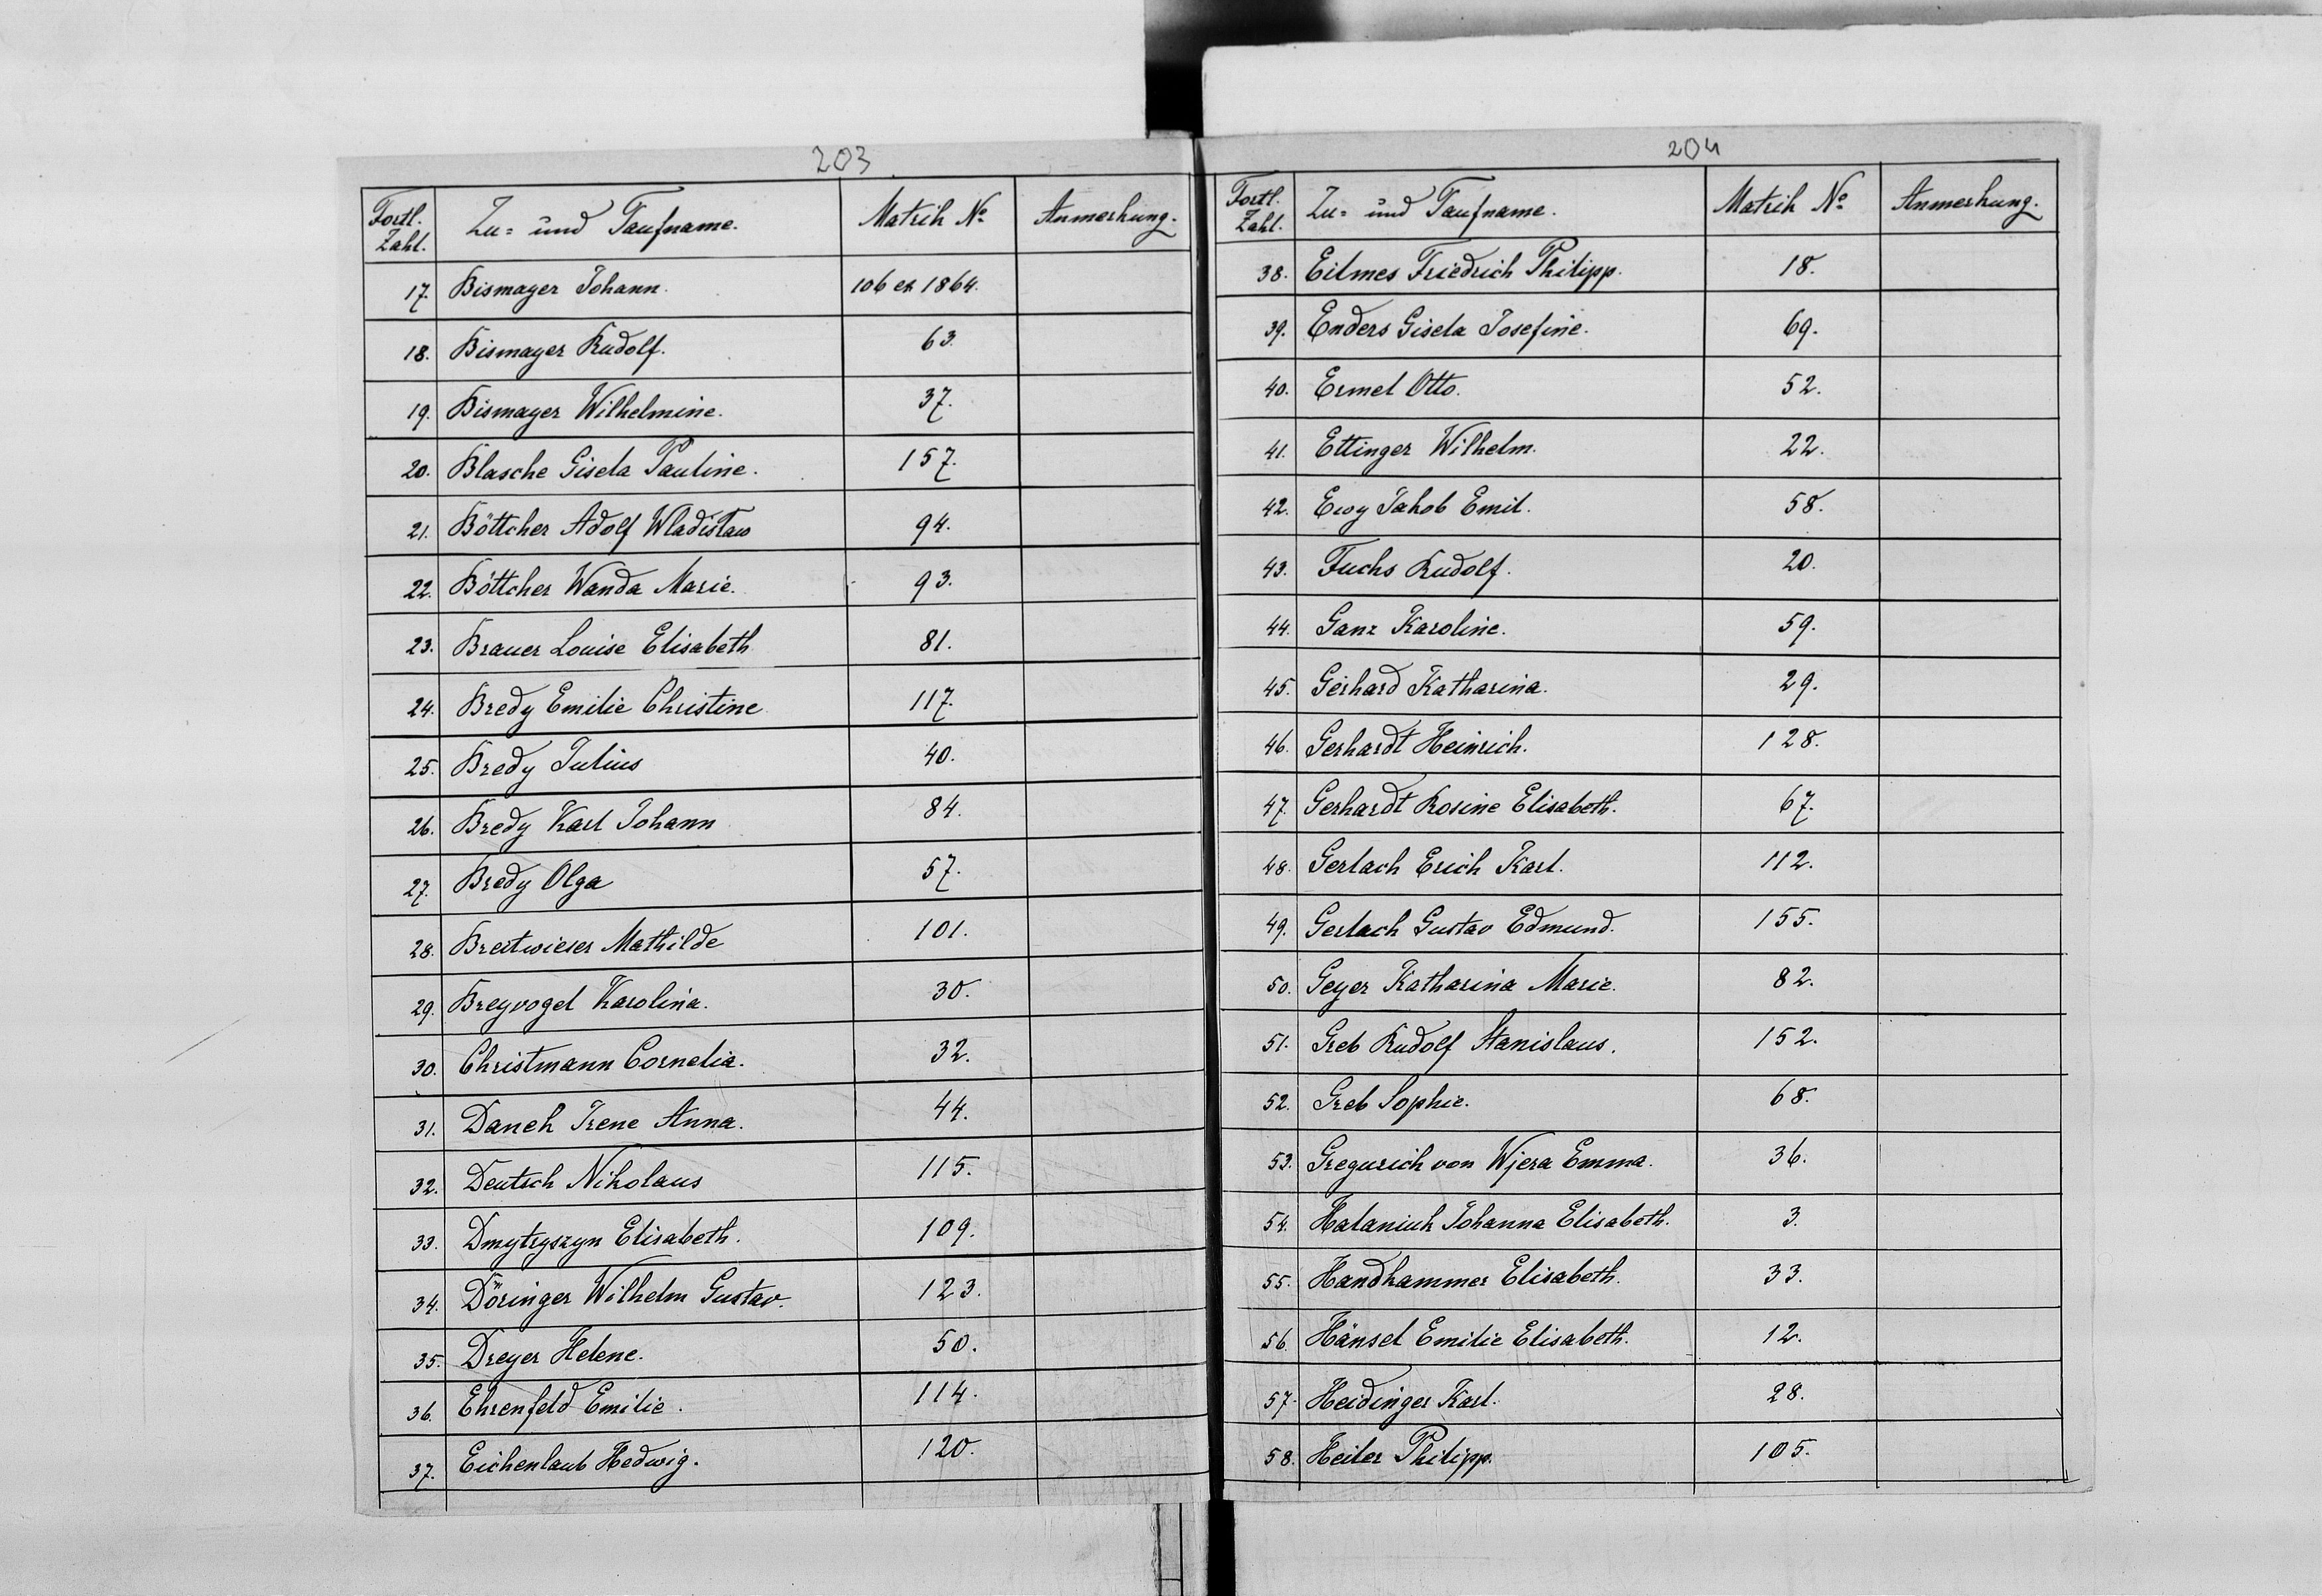 203
Fortl. Zahl. Zu= und Taufname. Matrik No Anmerkung.
17. Bismayer Johann. 106 ex 1864.
18. Bismayer Rudolf. 63.
19. Bismayer Wilhelmine. 37.
20. Blasche Gisela Pauline. 157.
21. Böttcher Adolf Wladislaw 94.
22. Böttcher Wanda Marie. 93.
23. Brauer Louise Elisabeth 81.
24. Bredy Emilie Christine 117.
25. Bredy Julius 40.
26. Bredy Karl Johann 84.
27. Bredy Olga 57.
28. Breitwieser Mathilde 101.
29. Breyvogel Karolina. 30.
30. Christmann Cornelia. 32.
31. Danek Irene Anna. 44.
32. Deutsch Nikolaus 115.
33. Dmytryszyn Elisabeth. 109.
34. Döringer Wilhelm Gustav. 123.
35. Dreyer Helene. 50.
36. Ehrenfeld Emilie. 114.
37. Eichenlaub Hedwig. 120.
204
Fortl. Zahl. Zu= und Taufname. Matrik No Anmerkung.
38. Eilmes Friedrich Philipp. 18.
39. Enders Gisela Josefine. 69.
40. Ermel Otto. 52.
41. Ettinger Wilhelm. 22.
42. Ewy Jakob Emil. 58.
43. Fuchs Rudolf. 20.
44. Ganz Karoline. 59.
45. Gerhard Katharina. 29.
46. Gerhardt Heinrich. 128.
47. Gerhardt Rosine Elisabeth. 67.
48. Gerlach Erich Karl. 112.
49. Gerlach Gustav Edmund. 155.
50. Geyer Katharina Marie. 82.
51. Greb Rudolf Stanislaus. 152.
52. Greb Sophie. 68.
53. Gregurich von Wjera Emma. 36.
54. Halaniuk Johanna Elisabeth. 3.
55. Handkammer Elisabeth. 33.
56. Hänsel Emilie Elisabeth. 12.
57. Heidinger Karl. 28.
58. Heiler Philipp. 105.